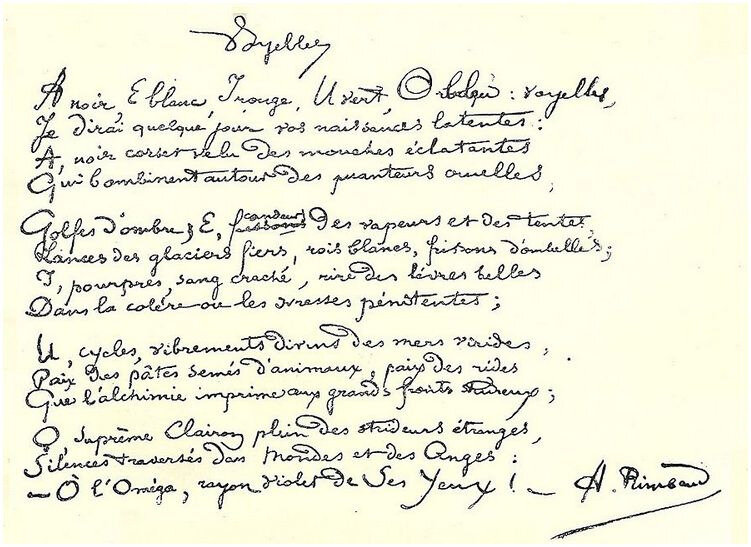 Voyelles
A noir, E blanc, I rouge, U vert, O bleu : voyelles,
Je dirai quelque jour vos naissances latentes :
A, noir corset velu des mouches éclatantes
Qui bombinent autour des puanteurs cruelles,
Golfes d'ombre ; E, candeurs des vapeurs et des tentes,
Lances des glaciers fiers, rois blancs, frissons d'ombelles ;
I, pourpres, sang craché, rire des lèvres belles
Dans la colère ou les ivresses pénitentes ;
U, cycles, vibrements divins des mers virides,
Paix des pâtis semés d'animaux, paix des rides
Que l'alchimie imprime aux grands fronts studieux ;
O, suprême Clairon plein des strideurs étranges,
Silences traversés des Mondes et des Anges :
— Ô l'Oméga, rayon violet de Ses Yeux ! —
A. Rimbaud